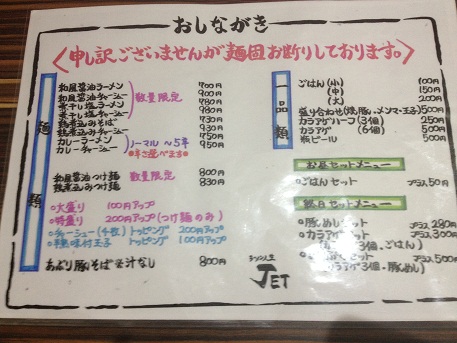 おしながき
〈申し訳ございませんが麺固お断りしております。〉
麺類
和風醤油ラーメン 700円
和風醤油チャーシュー 900円
煮干し塩ラーメン 780円
煮干し塩チャーシュー 980円
数量限定
鶏煮込みそば 730円
鶏煮込みチャーシュー 930円
カレーラーメン 750円
カレーチャーシュー 950円
ノーマル〜5辛
※辛さ選べます※
和風醤油つけ麺 800円
鶏煮込みつけ麺 830円
数量限定
○大盛り 100円アップ
○特盛り 200円アップ(つけ麺のみ)
○チャーシュー(4枚)トッピング 200円アップ
○半熟味付玉子トッピング 100円アップ
あぶり豚そば 汁なし 800円
一品類
ごはん(小) 100円
(中) 150円
(大) 200円
盛り合わせ(豚・メンマ・玉子) 500円
カラアゲハーフ(3個) 250円
カラアゲ(6個) 500円
瓶ビール 500円
お昼セットメニュー
○ごはんセット プラス50円
総合セットメニュー
○豚めしセット プラス280円
○カラアゲセット プラス300円
3個、ごはん)
セット プラス500円
カラアゲ3個・豚めし)
JET